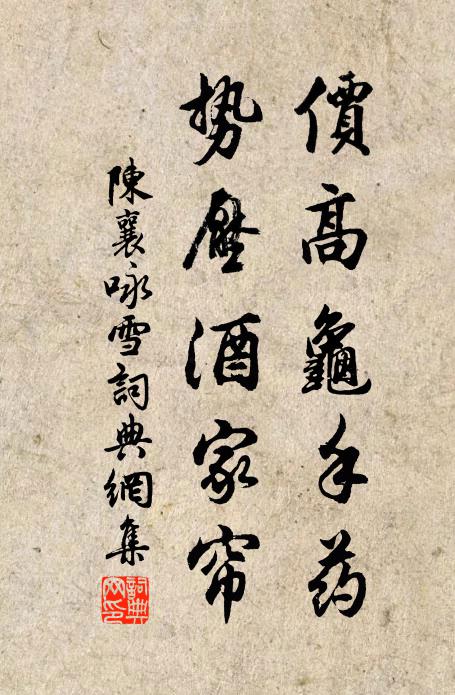 價高龜手药
势壓酒家帘
陳襄咏雪詞典網集
詞典网印